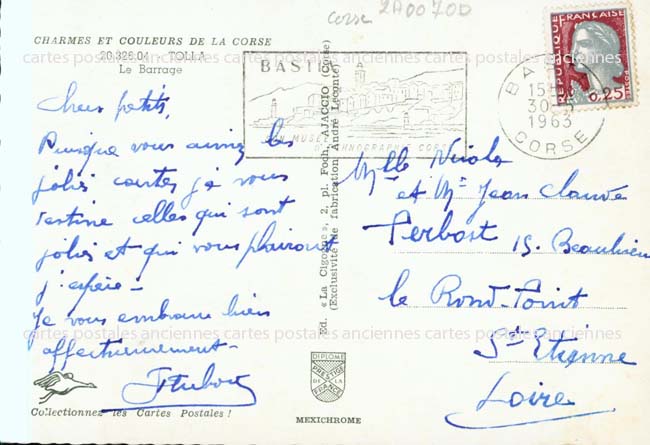 Corse 2A00700
CHARMES ET COULEURS DE LA CORSE
20.326.04 TOLLA
Le Barrage
BASTIA
SON MUSEE
D'ETHNOGRAPHIE CORSE
BASTIA
15H
30-5
1963
CORSE
REPUBLIQUE FRANÇAISE
0,25
Chers petits,
Puisque vous aimez les
jolies cartes je vous
destine celles qui sont
jolies et qui vous plairont
j'espère -
Je vous embrasse bien
affectueusement -
Melle Nicole
et Mr Jean Claude
15. Beaulieu
le Rond-Point
St Etienne
Loire
Ed. « La Cigogne », 2, pl. Foch, AJACCIO (Corse)
(Exclusivité de fabrication André Leconte)
cartes postales anciennes cartes postales anciennes cartes postales anciennes
DIPLOME
PRESTIGE
DE LA
FRANCE
Collectionnez les Cartes Postales !
MEXICHROME